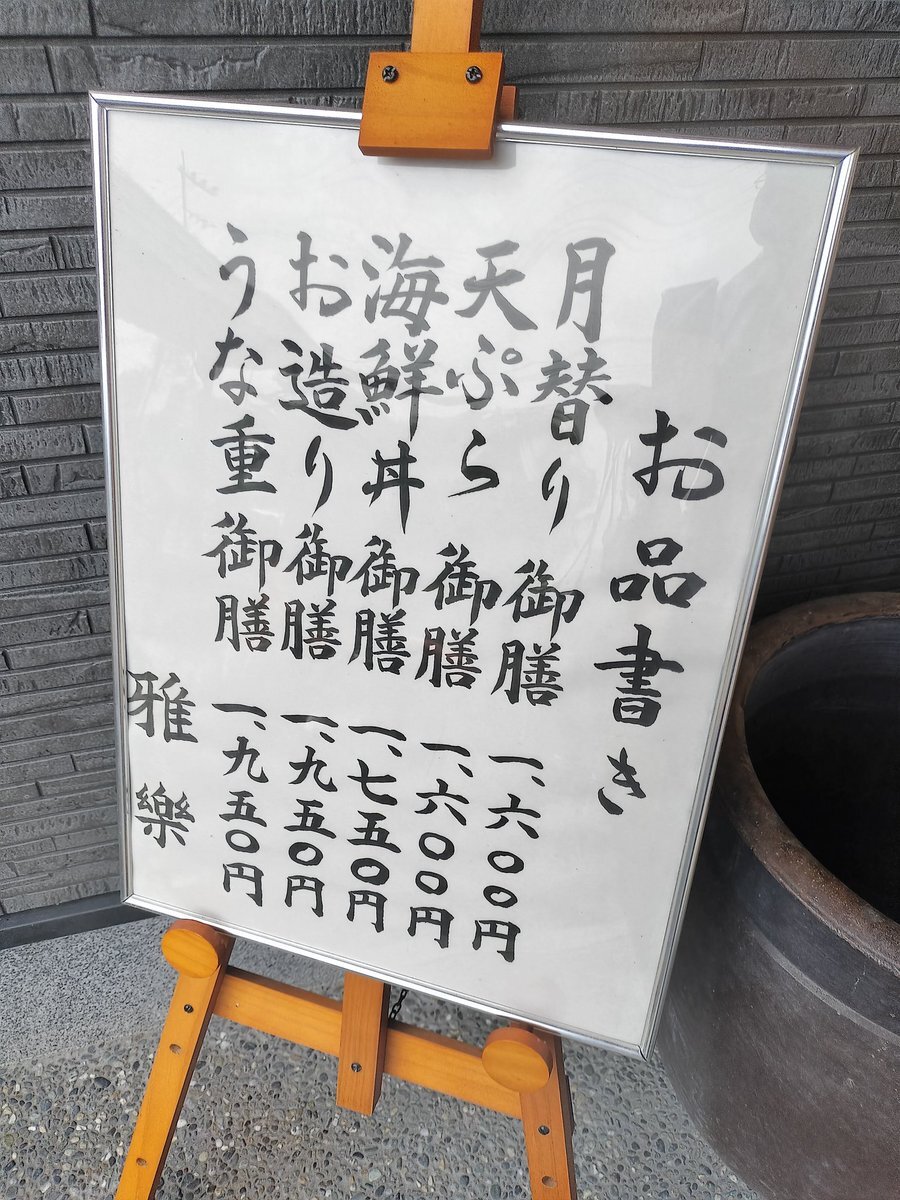 お品書き
月替り御膳 一、六〇〇円
天ぷら御膳 一、六〇〇円
海鮮丼御膳 一、七五〇円
お造り御膳 一、九五〇円
うな重御膳 一、九五〇円
雅樂